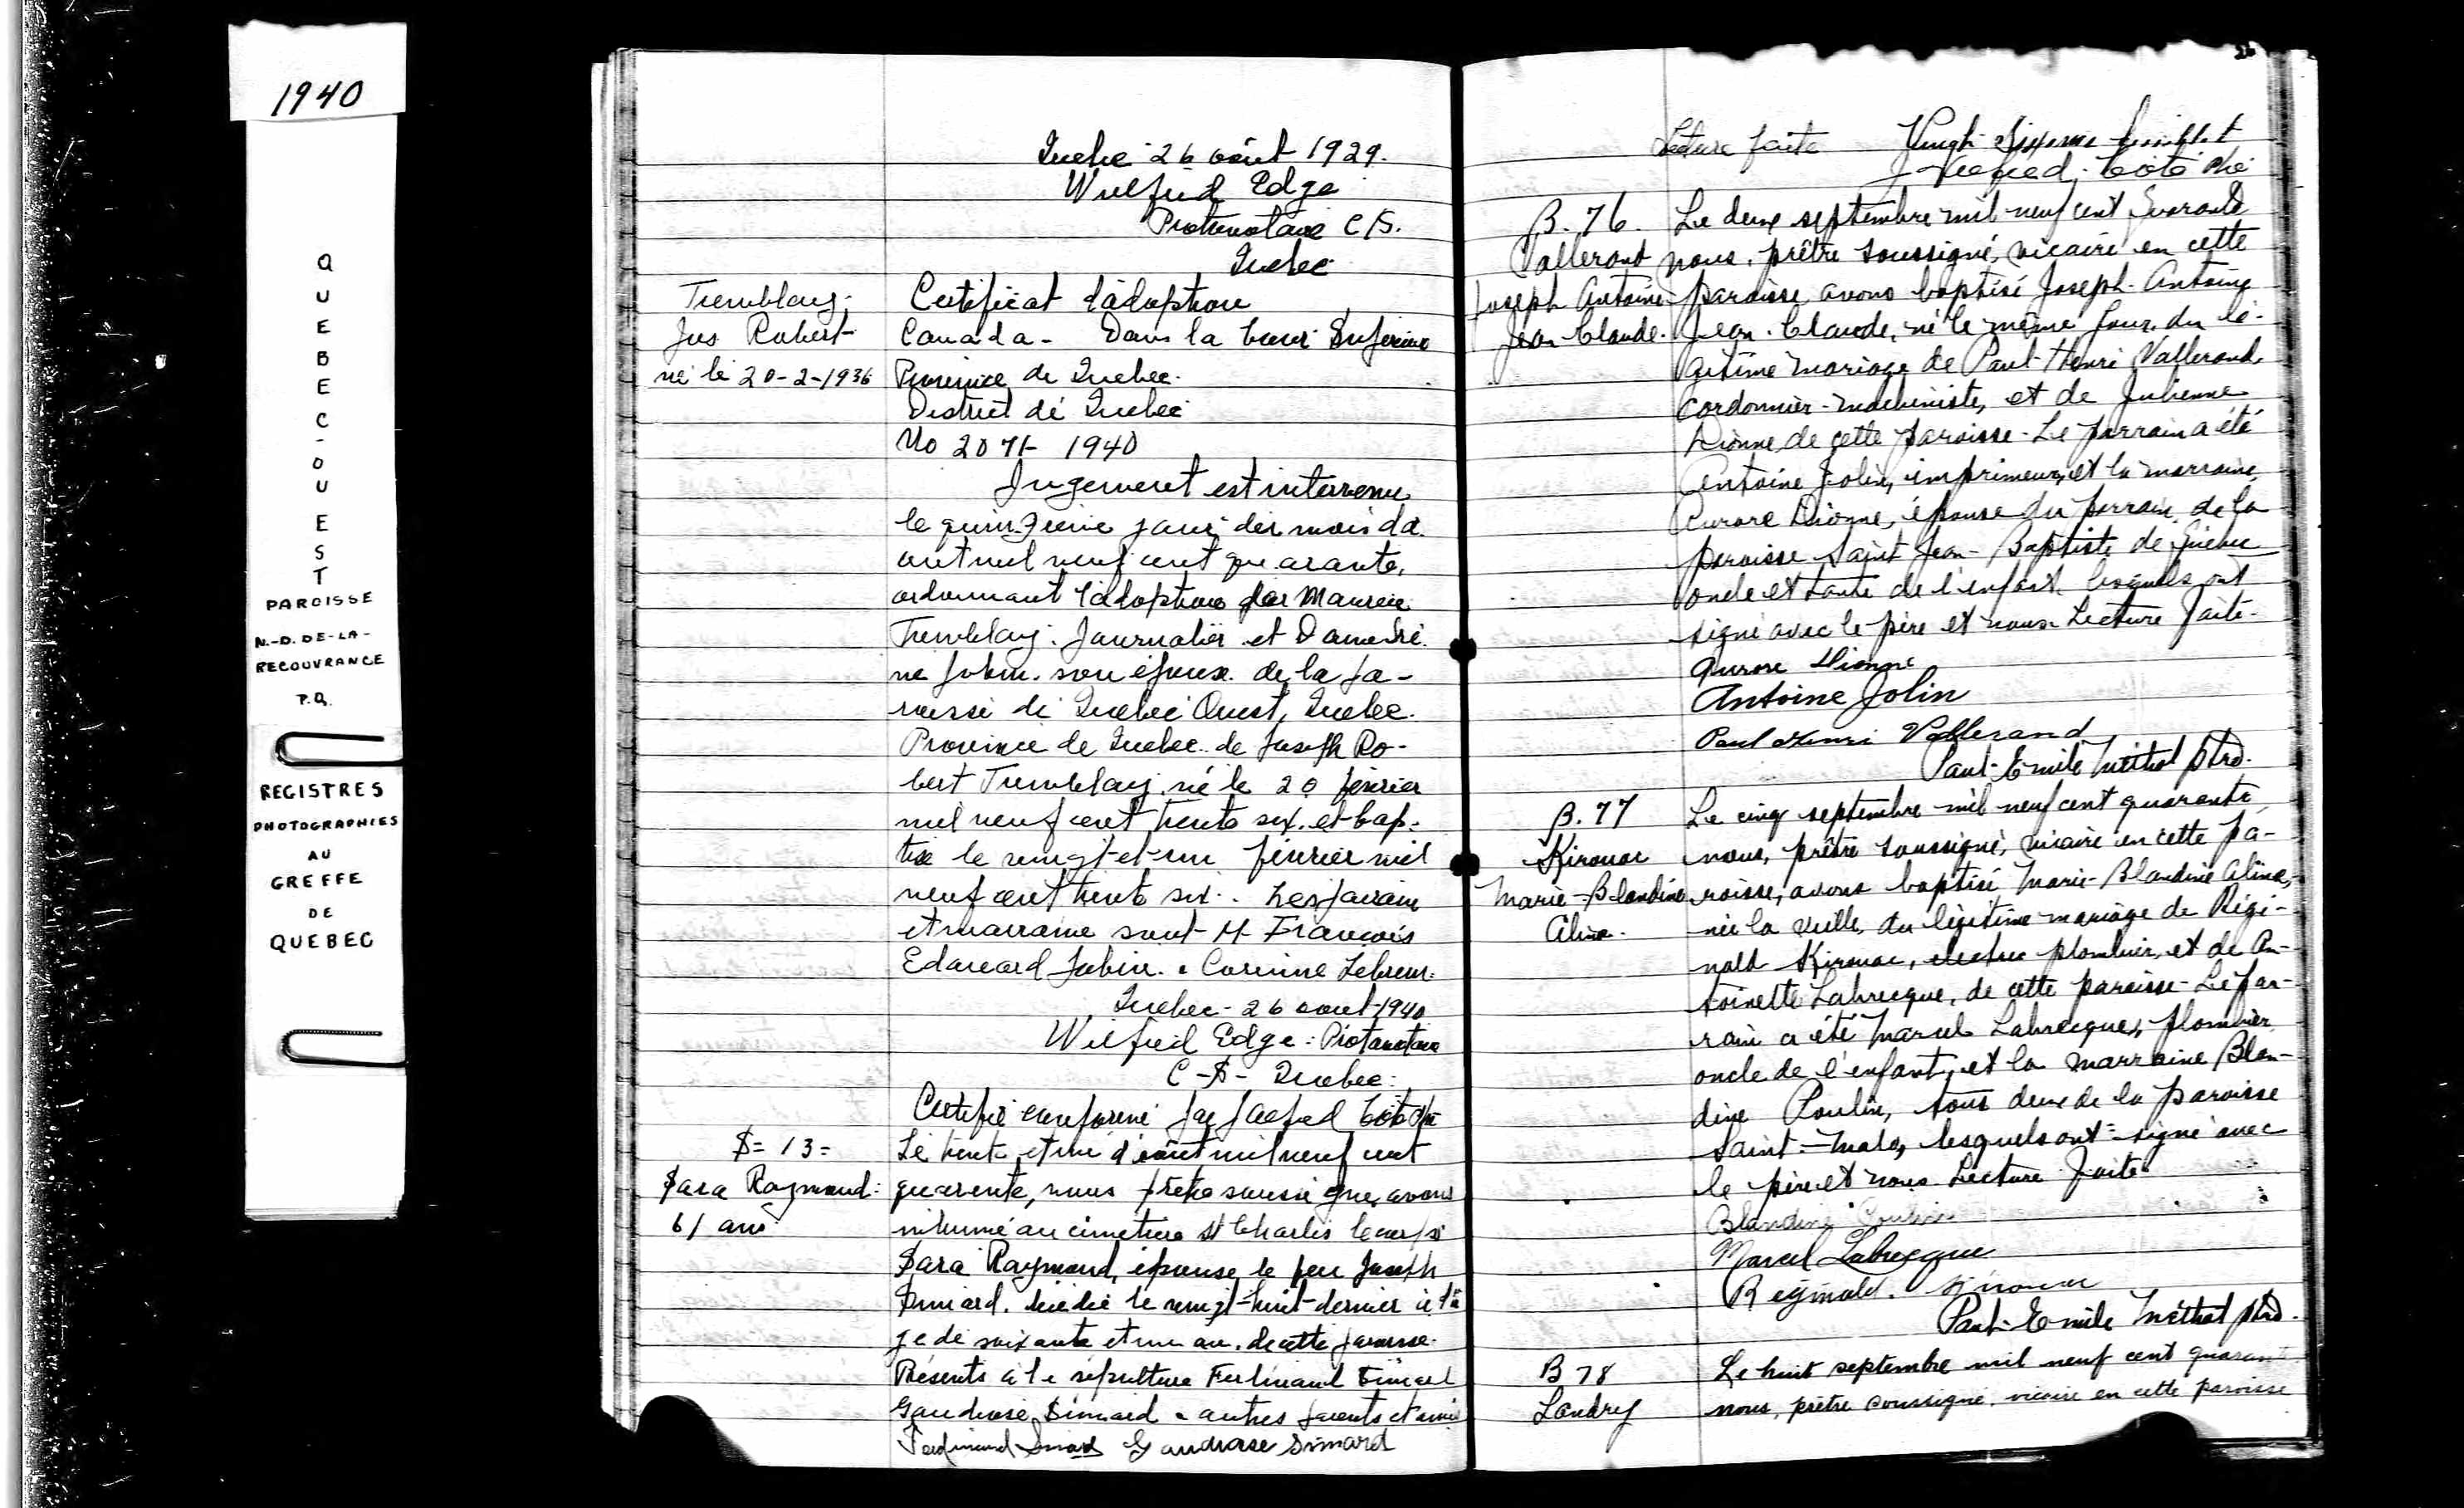 1940
QUEBEC-OUEST
PAROISSE
N.-D. DE-LA-
RECOUVRANCE
P.Q.
REGISTRES
PHOTOGRAPHIES
AU
GREFFE
DE
QUEBEC
Quebec 26 août 1929.
Wilfrid Edge
Protonotaire C.S.
Quebec
Tremblay.
Jos Robert
né le 20-2-1936
Certificat d'adoption
Canada - Dans la Cour Superieure
Province de Quebec.
District de Quebec
No 2071- 1940
Jugement est intervenu
le quinzieme jour du mois da
out mil neuf cent quarante,
ordonnant l'adoption par Maurice
Tremblay. Journalier et Dame
son épouse. de la pa-
roisse de Quebec Ouest, Quebec.
Province de Quebec. de Joseph Ro-
bert Tremblay. né le 20 février
mil neuf cent trente six. et bap-
tisé le vingt-et-un février mil
neuf cent trente six. Les parrain
et marraine sont M François
Edouard Jobin. & Corinne
Quebec - 26 aout 1940
Wilfrid Edge: Protonotaire
C-S- Quebec:
Certifié conforme par
S= 13=
Sara Raymond:
61 ans
Le trente et un d'août mil neuf cent
quarante, nous prêtre soussigné, avons
inhumé au cimetiere St Charles le corps
Sara Raymond, épouse de feu Joseph
Simard. décédée le vingt-huit dernier à l'â
ge de soixante et un an. de cette paroisse.
Présents à la sépulture Ferdinand Simard
Gaudiose Simard & autres parents et amis
Ferdinand Simard Gaudiose Simard
26
Lecture faite Vingt-sixieme feuillet
B. 76.
Vallerand
Joseph Antoine
Jean-Claude.
Le deux septembre mil neuf cent quarante
nous, prêtre soussigné, vicaire en cette
paroisse avons baptisé Joseph-Antoine
Jean-Claude, né le même jour, du lé-
gitime mariage de Paul-Henri Vallerand
cordonnier-machiniste, et de Julienne
Dionne de cette paroisse - Le parrain a été
Antoine Jolin, imprimeur, et la marraine,
Aurore Dionne, épouse du parrain, de la
paroisse Saint Jean-Baptiste de Québec
oncle et tante de l'enfant lesquels ont
signé avec le père et nous. Lecture faite-
Aurore Dionne
Antoine Jolin
Paul Henri Vallerand
Paul-Emile Méthot ptre.
B. 77
Kirouac
Marie-Blandine
Aline.
Le cinq septembre mil neuf cent quarante
nous, prêtre soussigné, vicaire en cette pa-
roisse, avons baptisé Marie-Blandine Aline,
née la veille, du légitime mariage de Régi-
nald Kirouac, plombier, et de An-
toinette Labrecque, de cette paroisse - Le par-
rain a été Marcel Labrecque, plombier
oncle de l'enfant, et la marraine Blan-
dine Poulin, tous deux de la paroisse
Saint-Malo, lesquels ont signé avec
le père et nous. Lecture faite-
Blandine Poulin
Marcel Labrecque
Réginald. Kirouac
Paul-Emile Méthot ptre.
B 78
Landry
Le huit septembre mil neuf cent quarante
nous, prêtre soussigné, vicaire en cette paroisse